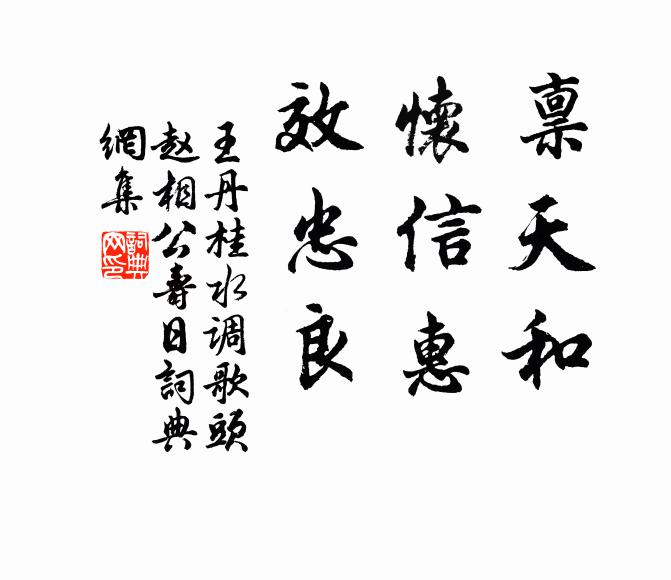 禀天和
懷信惠
效忠良
王丹桂水调歌頭
赵相公壽日詞典
網集
詞典
网印